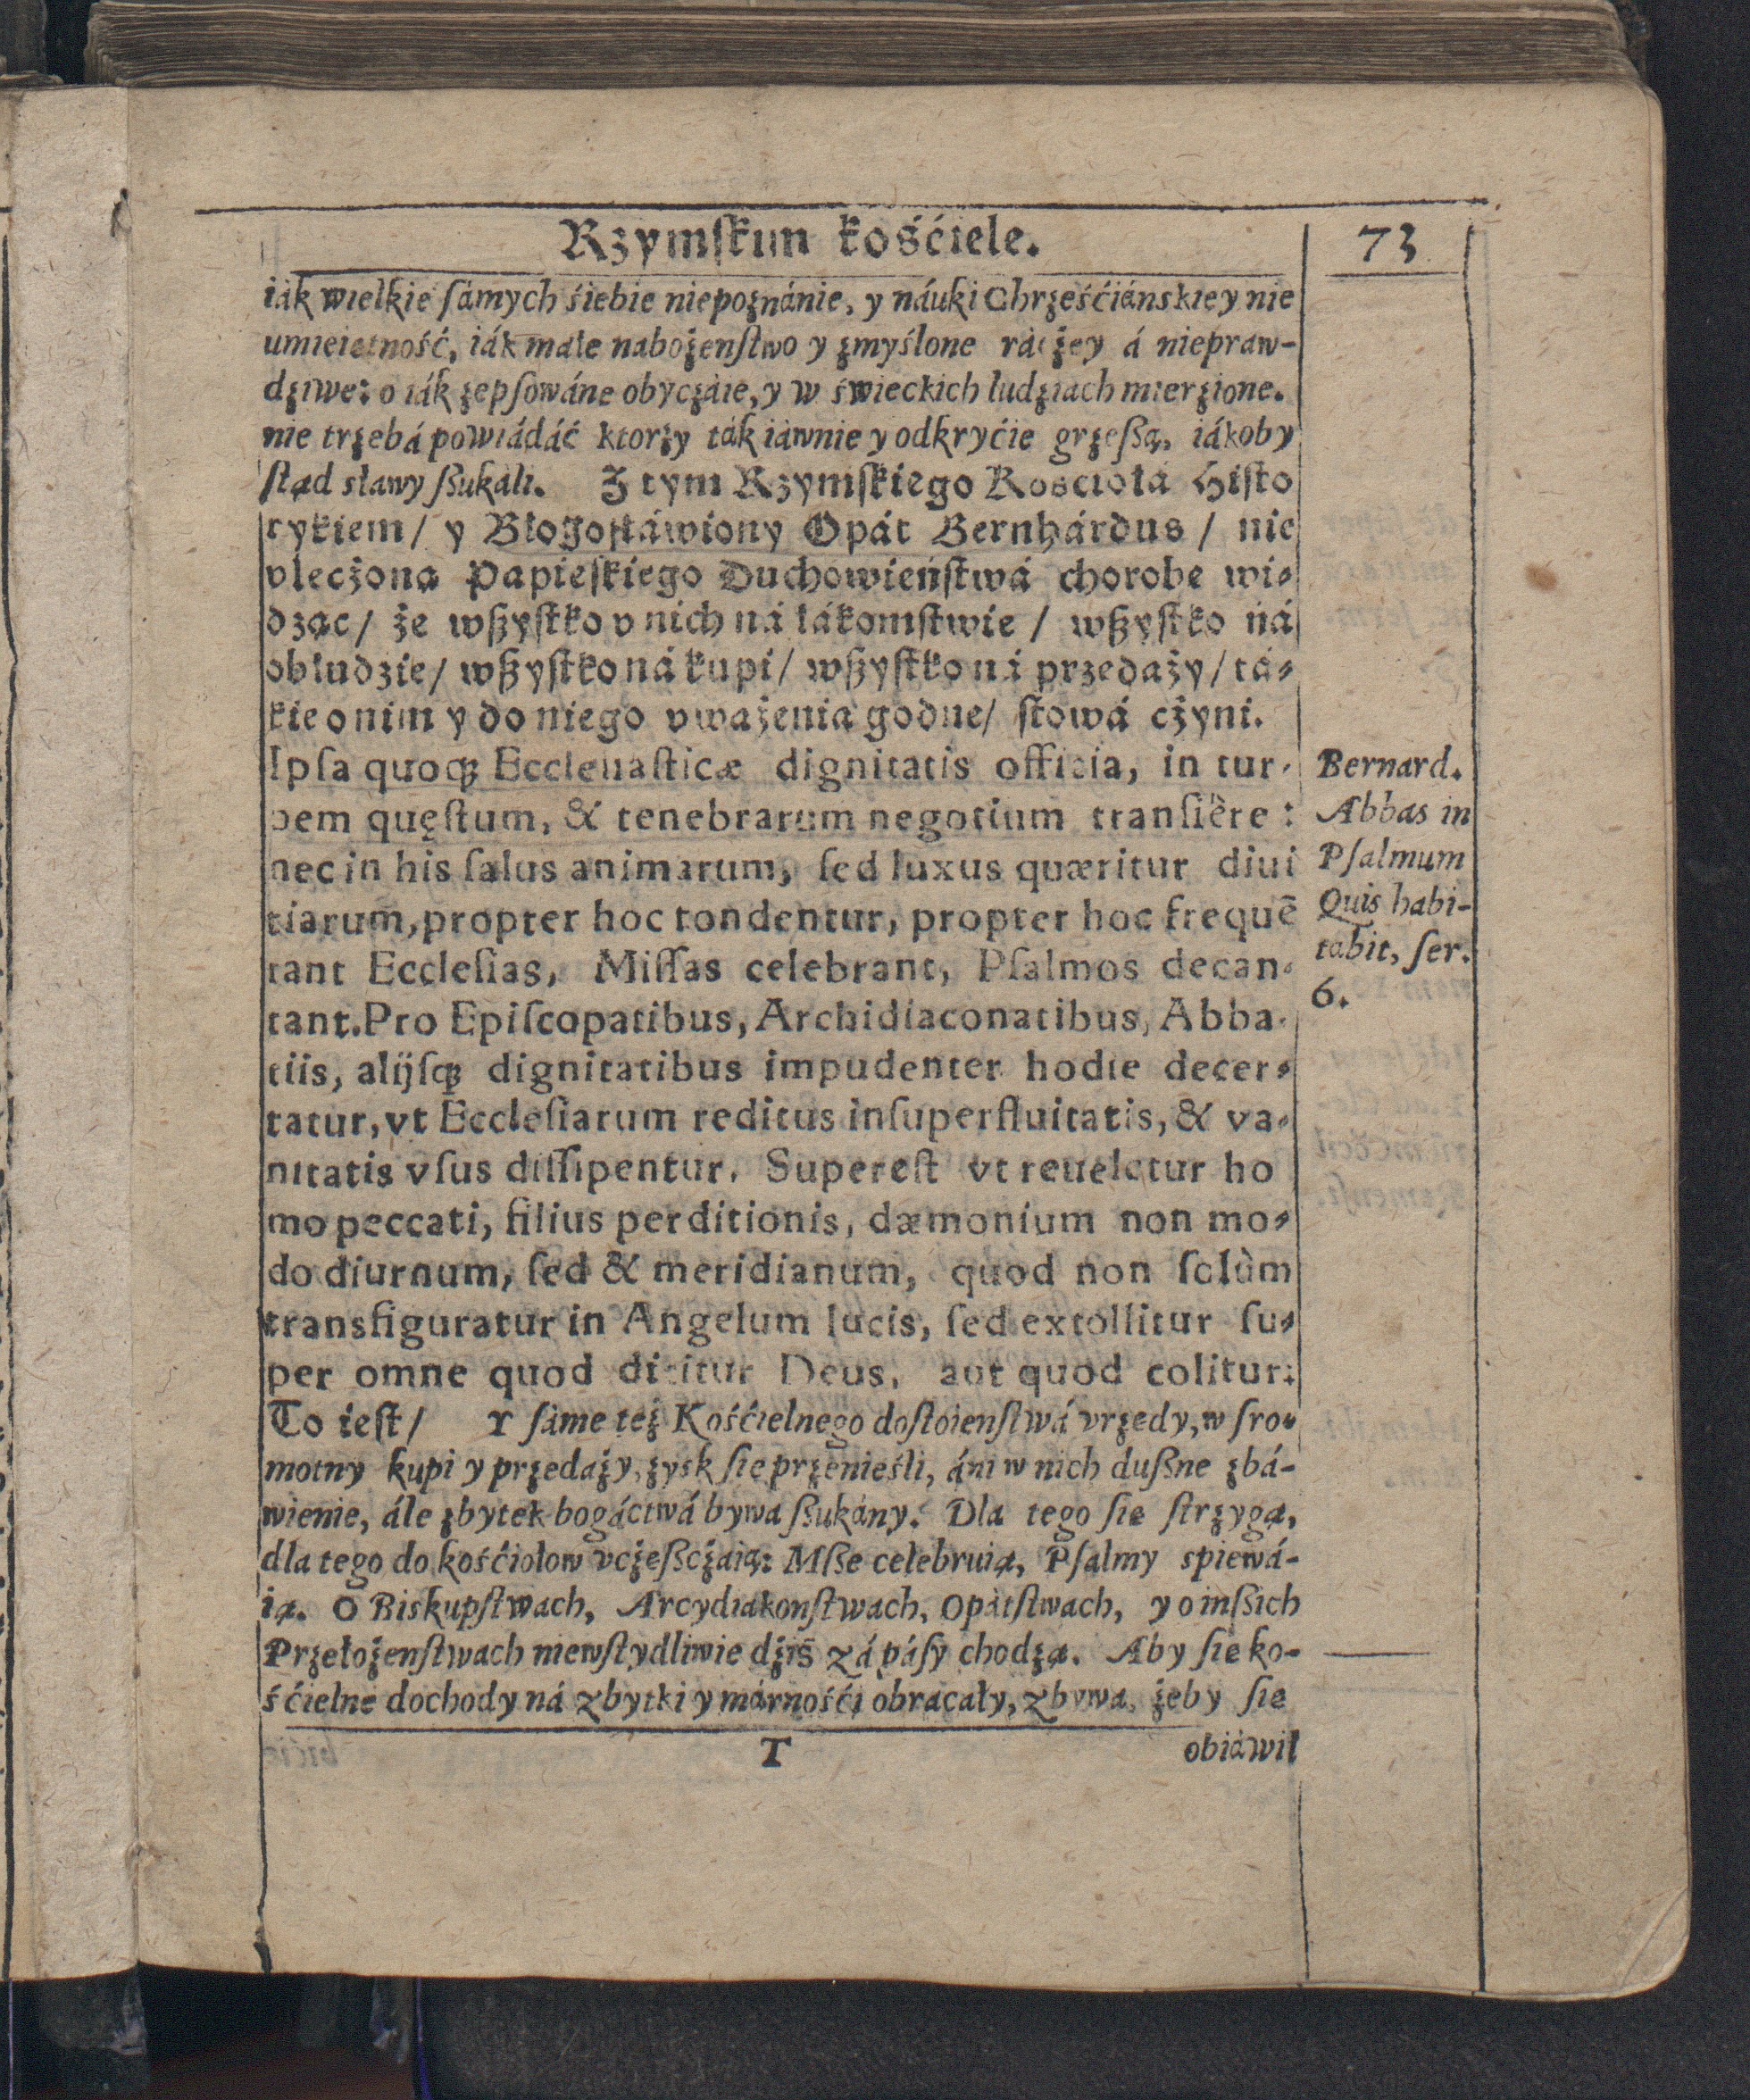 Rzymſkim kośćiele.
73
iák wielkie ſámych śiebie niepoznánie, y náuki Chrześćiánskiey nie
umieietność, iák małe nabożenſtwo y zmyślone ráczey á niepraw-
dziwe: o iák zepſowáne obyczáie, y w świeckich ludziach mierzione.
nie trzebá powiádáć ktorzy ták iáwnie y odkryćie grzeßą, iákoby
ſtąd sławy ßukáli. Z tym Rzymſkiego Kościołá Hiſto
rykiem/ y Błogoſłáwiony Opát Bernhárdus / nie
vleczona Papieſkiego Duchowieńſtwá chorobe wi⸗
dząc/ że wßyſtko v nich ná łákomſtwie / wßyſtko ná
obłudzie/ wßyſtko ná kupi/ wßyſtko ná przedaży/ tá⸗
kie o nim y do niego vważenia godne/ ſłowá czyni.
Ipſa quoqȝ Eccleſiaſticæ dignitatis officia, in tur⸗
pem quęſtum, & tenebrarum negotium tranſiêre :
nec in his ſalus animarum, ſed luxus quæritur diui
tiarum, propter hoc tondentur, propter hoc frequẽ
tant Eccleſias, Miſſas celebrant, Pſalmos decan⸗
tant. Pro Epiſcopatibus, Archidiaconatibus, Abba⸗
tiis, alijſqȝ dignitatibus impudenter hodie decer⸗
tatur, vt Eccleſiarum reditus inſuperfluitatis, & va⸗
nitatis vſus diſſipentur. Supereſt vt reueletur ho
mo peccati, filius perditionis, dæmonium non mo⸗
do diurnum, ſed & meridianum, quod non ſolùm
transfiguratur in Angelum lucis, ſed extollitur ſu⸗
per omne quod dicitur Deus, aut quod colitur:
To ieſt/ Y ſáme też Kośćielnego doſtoienſtwá vrzedy, w ſro⸗
motny kupi y przedaży, zysk ſie przenieśli, áni w nich dußne zbá-
wienie, ále zbytek bogáctwá bywa ßukány. Dla tego ſie ſtrzygą,
dla tego do kośćiołow vczeßczáią: Mße celebruią, Pſalmy spiewá-
ią. O Biskupſtwach, Arcydiakonſtwach, Opátſtwach, y o inßich
Przełożenſtwach niewſtydliwie dziś zá páſy chodzą. Aby ſie ko-
śćielne dochody ná zbytki y márnośći obracały, zbywa, żeby ſie
T
obiáwił
Bernard.
Abbas in
Pſalmum
Quis habi-
tabit, ſer.
6.